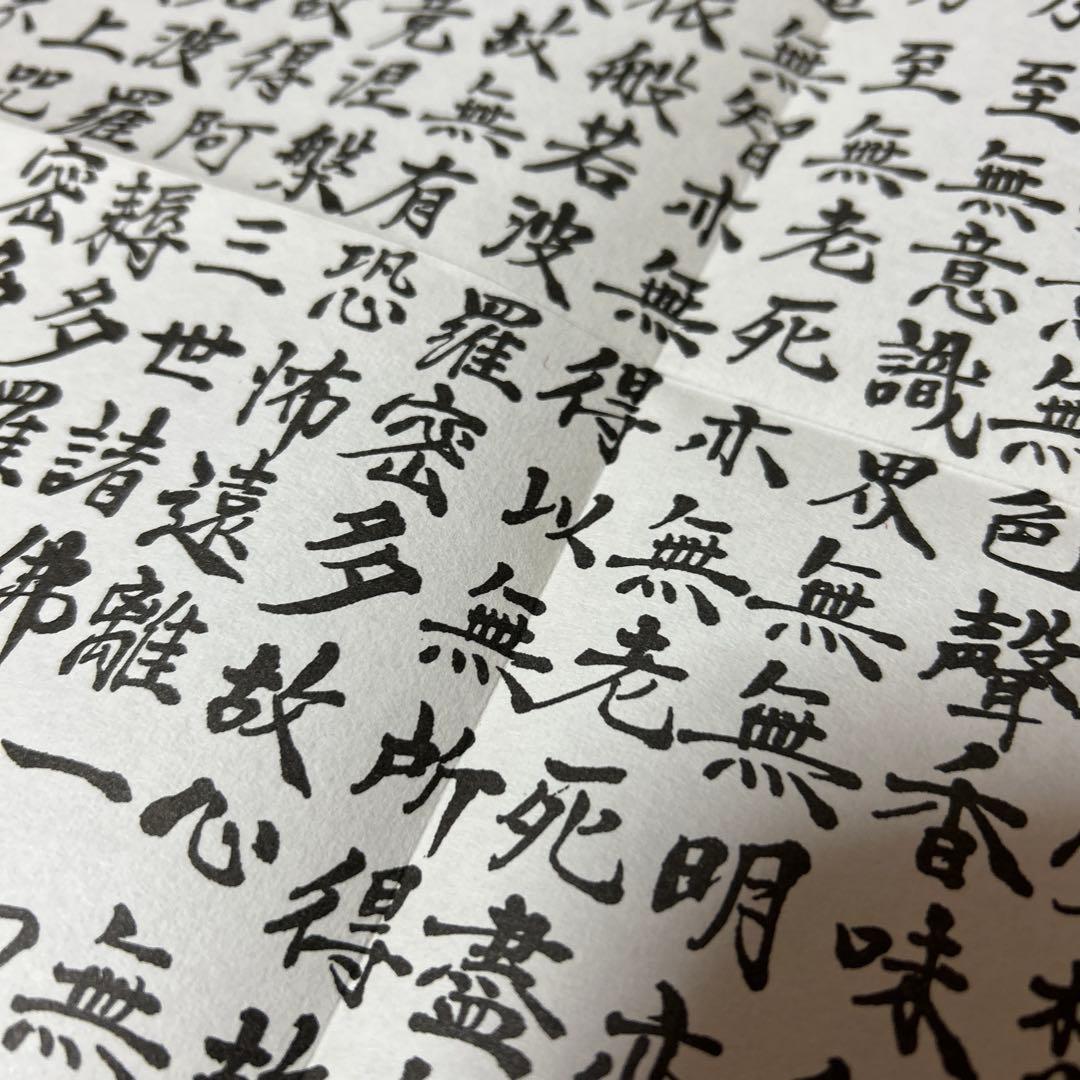 色聲香味
至無意識界無無明亦
至無老死亦無老死盡
無智亦無得以無所得故
依般若波羅密多故心無
故無有恐怖遠離一
竟涅槃三世諸佛
故得阿耨多羅
波羅密多
上呪